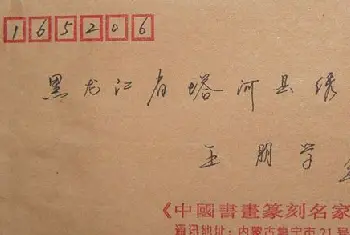 165206
黑龙江省塔河县绣
王朋学
《中國書畫篆刻名家
通讯地址：内蒙古集宁市21号